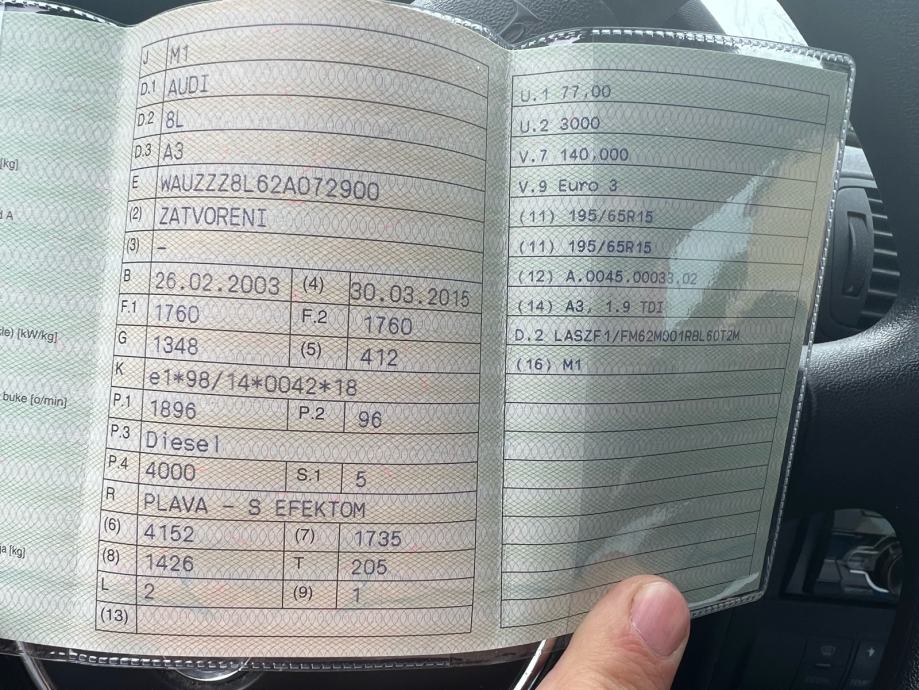 [kg]
d A
le) [kW/kg]
buke [o/min]
ja [kg]
J M1
D.1 AUDI
D.2 8L
D.3 A3
E WAUZZZ8L62A072900
(2) ZATVORENI
(3) –
B 26.02.2003 (4) 30.03.2015
F.1 1760 F.2 1760
G 1348 (5) 412
K e1*98/14*0042*18
P.1 1896 P.2 96
P.3 Diesel
P.4 4000 S.1 5
R PLAVA – S EFEKTOM
(6) 4152 (7) 1735
(8) 1426 T 205
L 2 (9) 1
(13)
U.1 77,00
U.2 3000
V.7 140,000
V.9 Euro 3
(11) 195/65R15
(11) 195/65R15
(12) A.0045.00033.02
(14) A3, 1.9 TDI
D.2
(16) M1